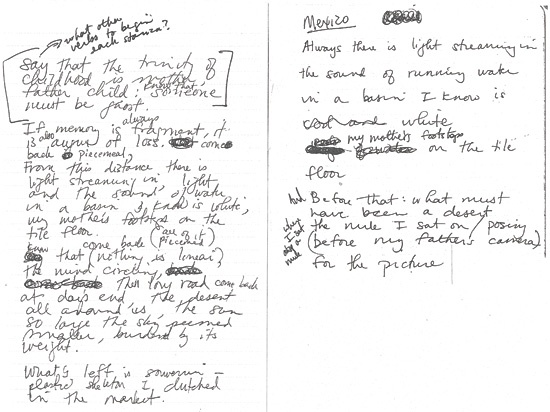 what other
verbs to begin
each stanza?
Say that the trinity of
childhood is mother,
father child: know that someone
must be ghost.
If memory is always fragment, it
is also augur of loss. come
back piecemeal,
From this distance there is
light streaming in light
and the sound of water
in a basin I know is white,
my mother's footsteps on the
tile floor.
come back (are of it) piecemeal
that (nothing is linear)
the mind circling,
this long road come back
at day's end the desert
all around us, the sun
so large the sky seemed
smaller, burdened by its
weight.
What's left is souvenir –
plastic skeleton I clutched
in the market.
Mexico
Always there is light streaming in
the sound of running water
in a basin I know is
cool and white
my mother's footsteps
on the tile
floor
Before that: what must
have been a desert
the mule I sat on / posing
(before my father's camera)
for the picture